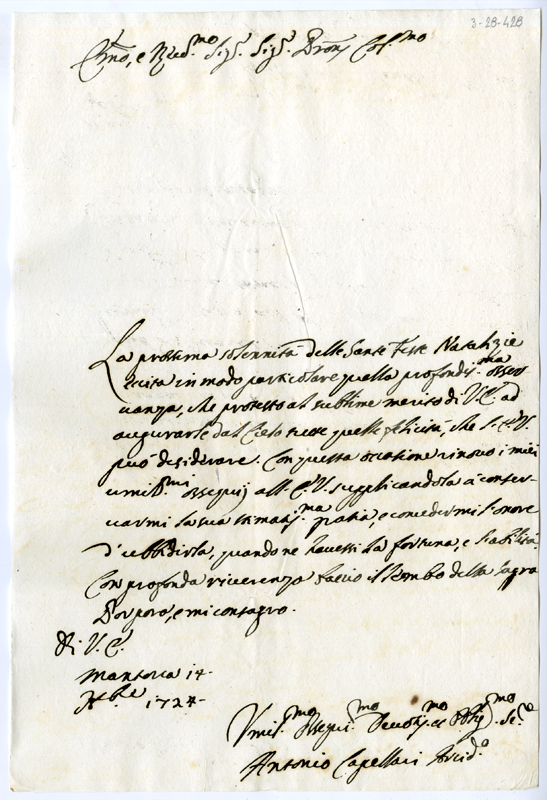 3-28-428
Em̃o, e Rev.mo Sig.r Sig.r Pron̄ Col.mo
La prossima solennità delle Sante Feste Natalizie
eccita in modo particolare quella profondis.ma osser
vanza, che protesto al sublime merito di V.E. ad
augurarle dal Cielo tutte quelle felicità, che l'E.V.
può desiderare. Con questa occatione rinovo i miei
umil.mi ossequij all'E.V. supplicandola a conser-
varmi la sua stimatis.ma gratia, e concedermi l'onore
d'ubbidirla, quando ne havessi la fortuna, e l'abilità.
Con profonda riverenza faccio il lembo della sagra
Porpora, e mi consagro.
Di V.E.
Mantova 14
Xb.re 1724
Umil.mo Osequi.mo Devotis.mo et Oblig.mo Se.re
Antonio Capellari Arcid.o